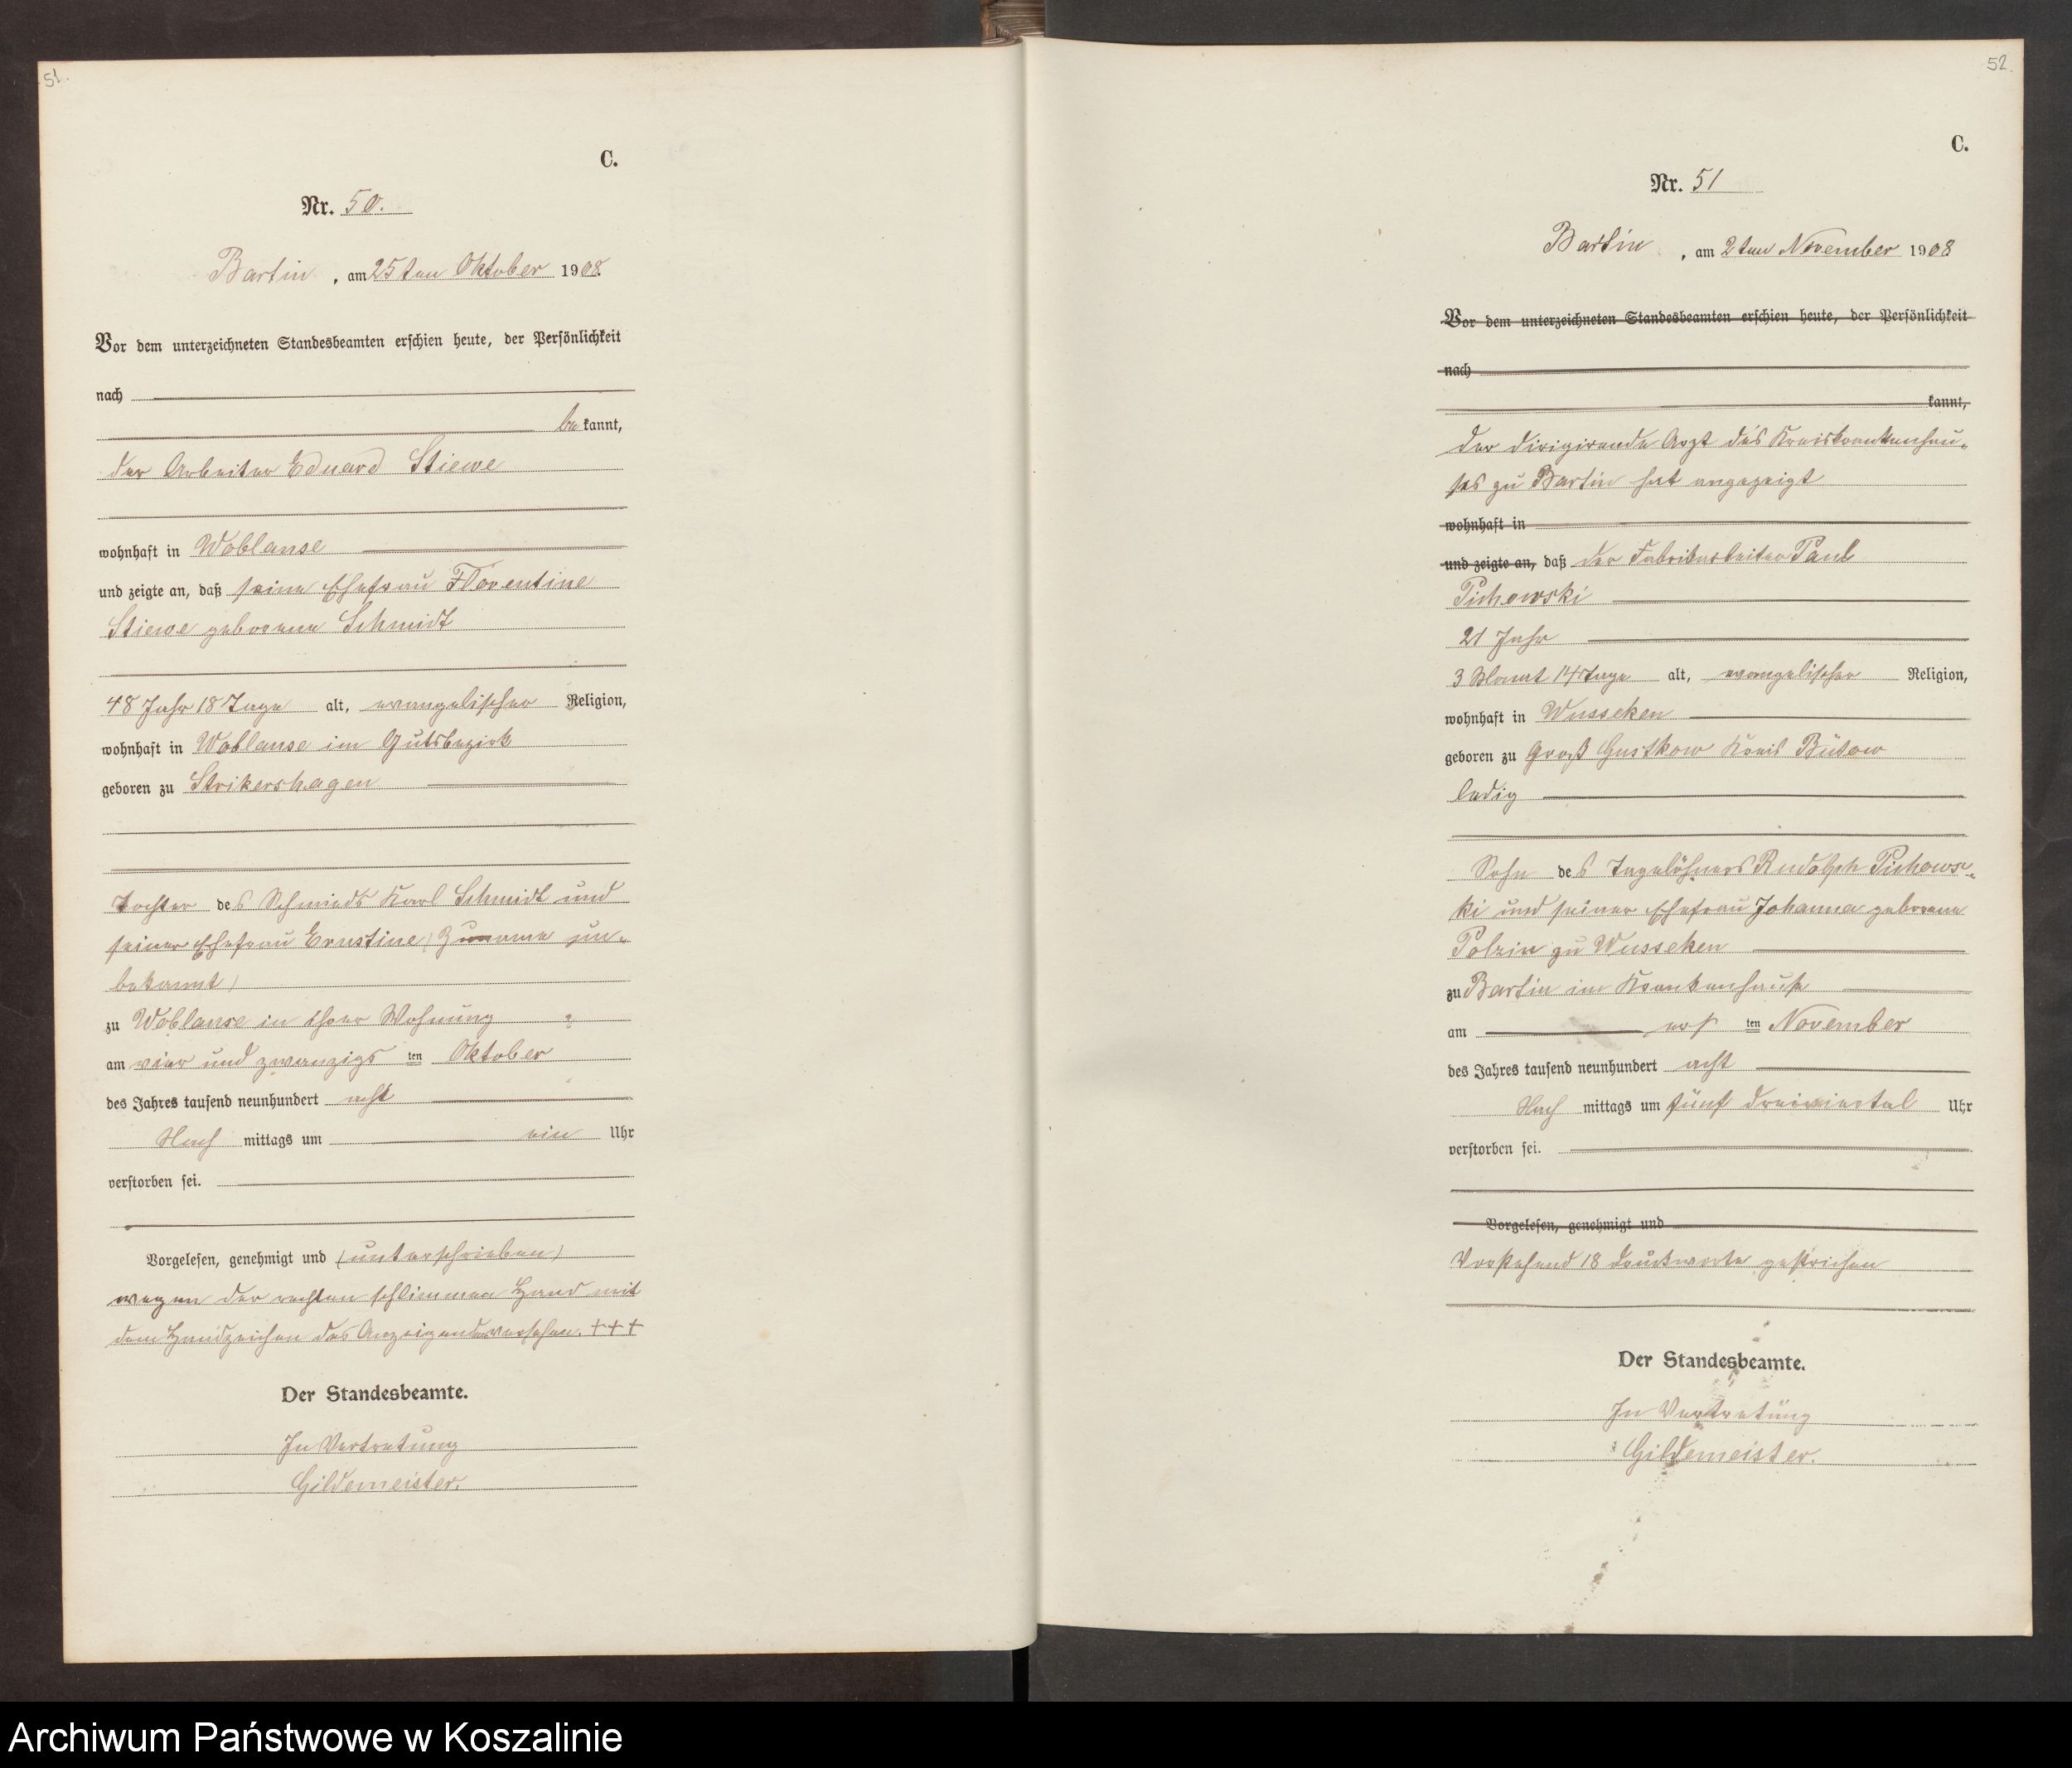 51.
C.
Nr. 50.
Bartin, am 25ten Oktober 1908.
Vor dem unterzeichneten Standesbeamten erschien heute, der Persönlichkeit
nach
be kannt,
der Arbeiter Eduard Stiewe
wohnhaft in Woblanse
und zeigte an, daß seine Ehefrau Florentine
Stiewe geborene Schmidt
48 Jahr 18 Tage alt, evangelischer Religion,
wohnhaft in Woblanse im Gutsbezirk
geboren zu Strikershagen
Tochter des Schmieds Karl Schmidt und
seiner Ehefrau Ernstine (Zuname un-
bekannt)
zu Woblanse in ihrer Wohnung
am vier und zwanzigs ten Oktober
des Jahres tausend neunhundert acht
Nach mittags um ein Uhr
verstorben sei.
Vorgelesen, genehmigt und (unterschrieben)
wegen der rechten schlimmen Hand mit
dem Handzeichen des Anzeigenden versehen. +++
Der Standesbeamte.
In Vertretung
Gildemeister.
52.
C.
Nr. 51
Bartin, am 2ten November 1908
Vor dem unterzeichneten Standesbeamten erschien heute, der Persönlichkeit
nach
kannt,
der dirigirende Arzt des Kreiskrankenhau-
ses zu Bartin hat angezeigt
wohnhaft in
und zeigte an, daß der Fabrikarbeiter Paul
Pichowski
21 Jahr
3 Monat 14 Tage alt, evangelischer Religion,
wohnhaft in Wusseken
geboren zu Groß Gustkow Kreis Bütow
ledig
Sohn des Tagelöhners Rudolph Pichows-
ki und seiner Ehefrau Johanna geborene
Polzin zu Wusseken
zu Bartin im Krankenhause
am ers ten November
des Jahres tausend neunhundert acht
Nach mittags um fünf dreiviertel Uhr
verstorben sei.
Vorgelesen, genehmigt und
Vorstehend 18 Druckworte gestrichen
Der Standesbeamte.
In Vertretung
Gildemeister.
Archiwum Państwowe w Koszalinie